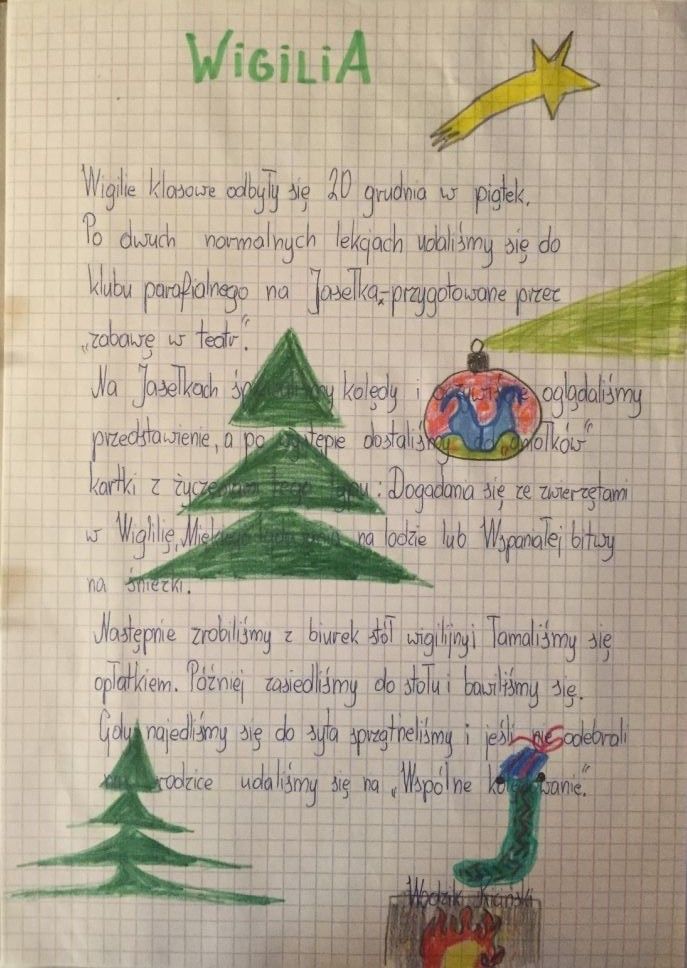 WIGILIA
Wigilie klasowe odbyły się 20 grudnia w piątek.
Po dwuch normalnych lekcjach udaliśmy się do
klubu parafialnego na Jasełka-przygotowane przez
„zabawę w teatr".
Na Jasełkach śpiewaliśmy kolędy i oczywiście oglądaliśmy
przedstawienie, a po występie dostaliśmy od „aniołków"
kartki z życzeniami tego typu: Dogadania się ze zwierzętami
w Wiglilię, Miękkiego lądowania na lodzie lub Wspanałej bitwy
na śnieżki.
Następnie zrobiliśmy z biurek stół wigilijny i łamaliśmy się
opłatkiem. Później zasiedliśmy do stołu i bawiliśmy się.
Gdy najedliśmy się do syta sprzątneliśmy i jeśli nie odebrali
rodzice udaliśmy się na „Wspólne kolędowanie."